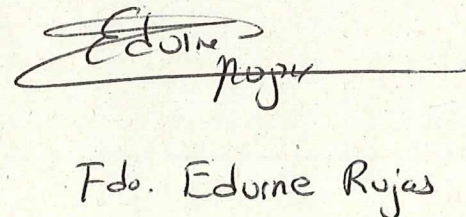 Edurne
Rojas
Fdo. Edurne Rojas